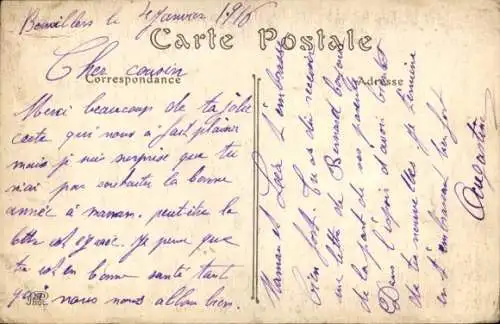 Bouvillers le 4 Janvier 1916
Carte Postale
Correspondance
Adresse
Cher cousin
Merci beaucoup de ta jolie
carte qui nous a fait plaisir
mais je suis surprise que tu
n'ai pas souhaiter la bonne
année à maman. peut-être la
lettre est égaré. Je pense que
tu est en bonne santé tant
qu'à nous nous allons bien.
Maman et se joint à t'embrasser
bien fort. Tu as dû recevoir
une lettre de Bernard
de la part de
Dans l'espoir d'avoir bientôt
de tes nouvelles je termine
en t'embrassant bien fort
Augustine